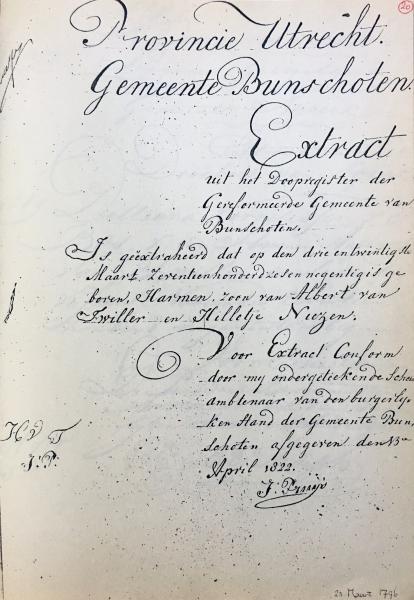 20
Provincie Utrecht.
Gemeente Bunschoten.
Extract
uit het Doopregister der
Gereformeerde Gemeente van
Bunschoten.
Is geëxtraheerd dat op den drie entwintigste
Maart Zeventienhonderd zes en negentig is ge
boren, Harmen, zoon van Albert van
Zwiller en Hilletje Niezen.
Voor Extract Conform
door my ondergeteekende
amblenaar van den burgerly-
ken Stand der Gemeente Bun
schoten afgegeven den 13en
April 1822.
H v T
J: P:
23 Maart 1796